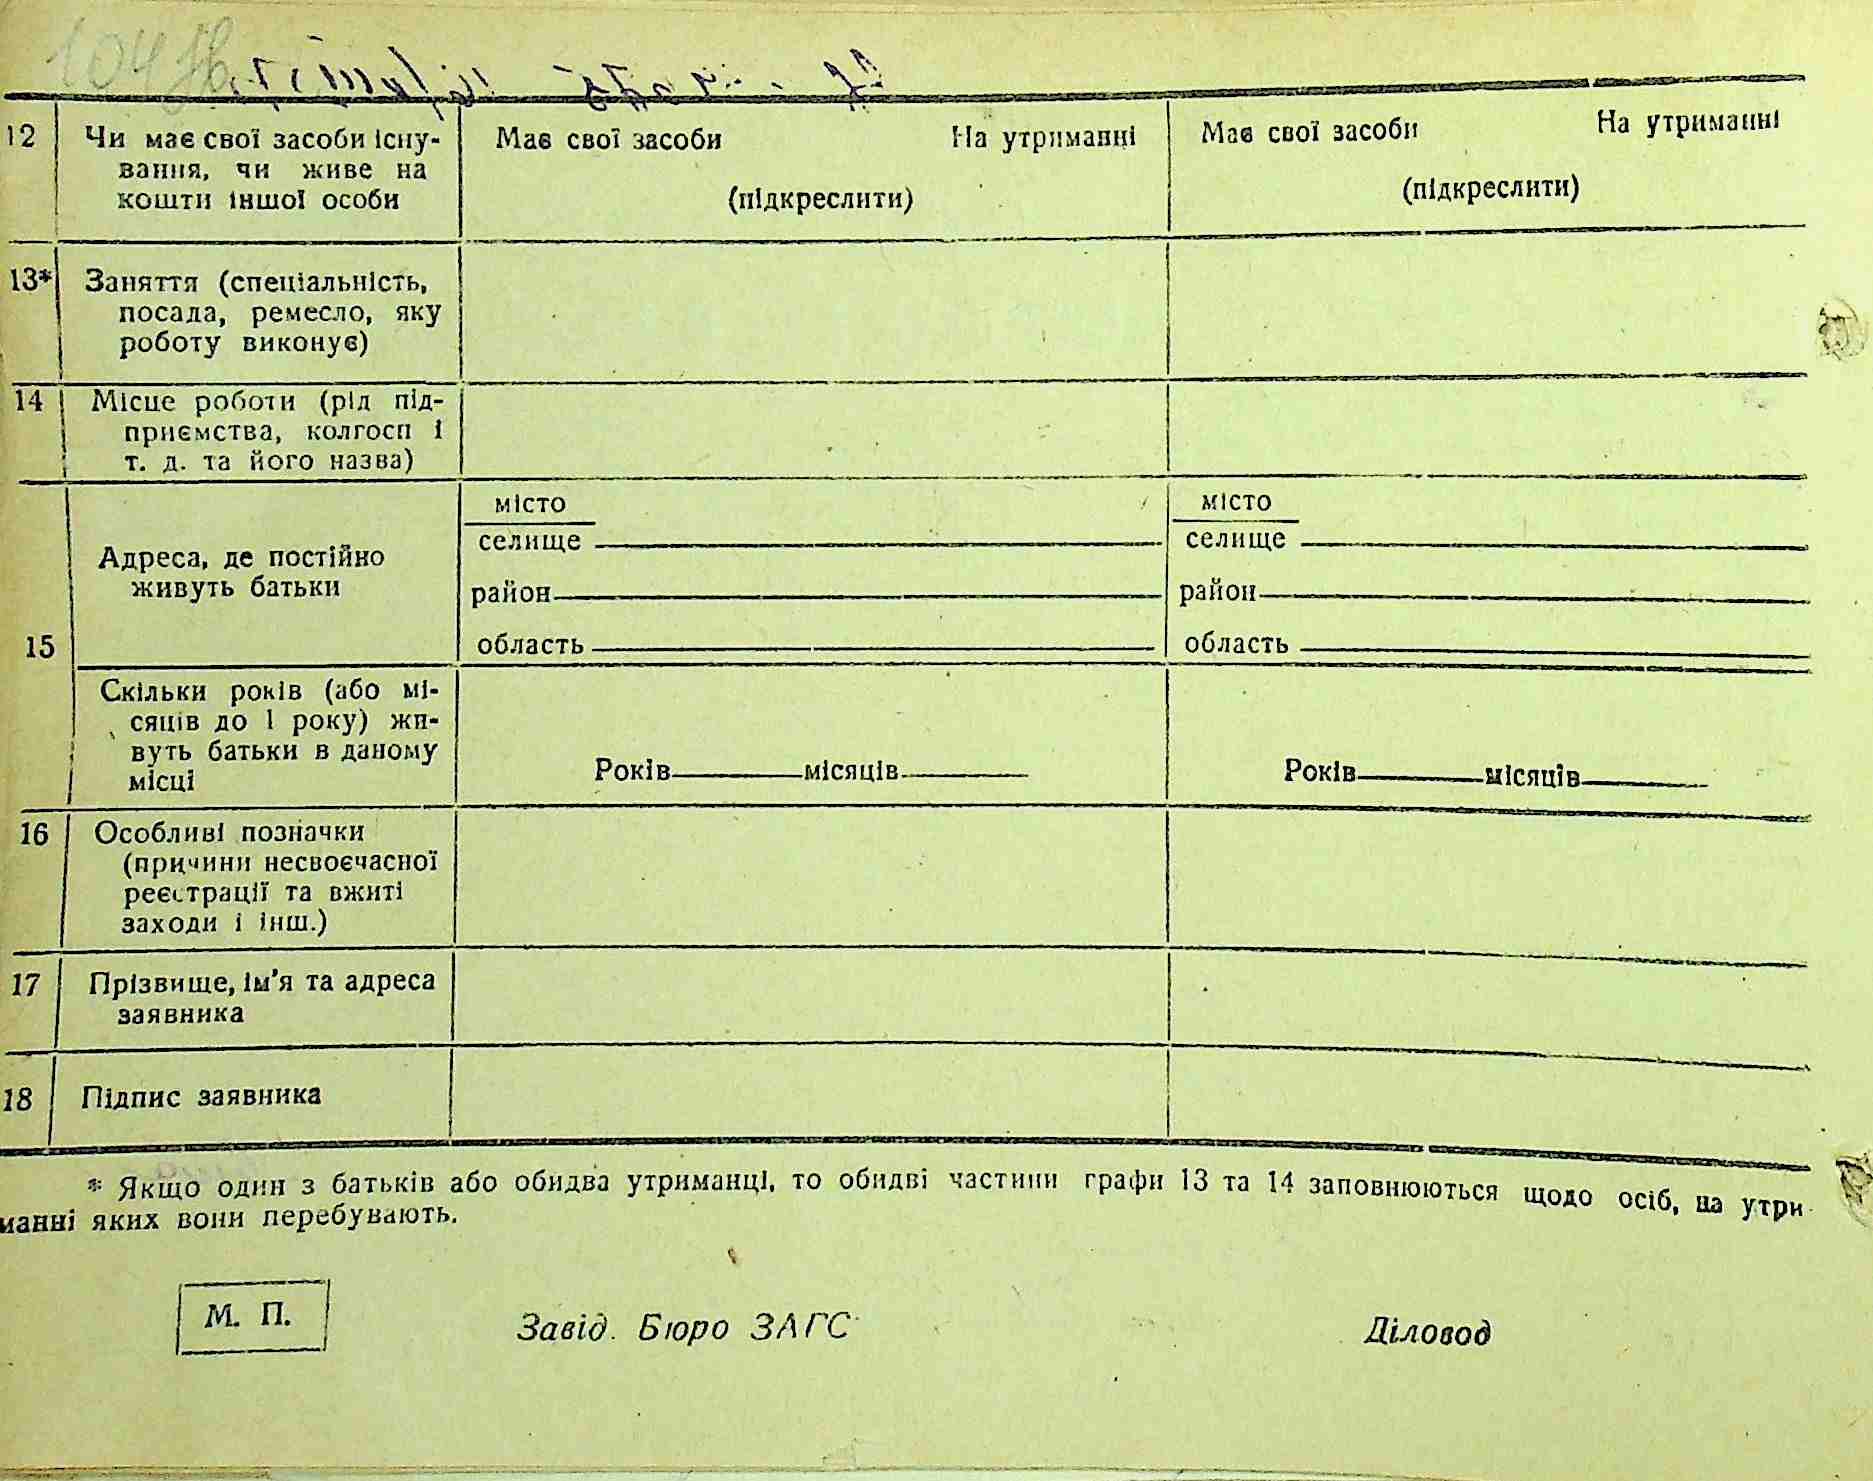 104
12 Чи має свої засоби існу- Має свої засоби На утриманні Має свої засоби На утриманні
вання, чи живе на
кошти іншої особи (підкреслити) (підкреслити)
13* Заняття (спеціальність,
посада, ремесло, яку
роботу виконує)
14 Місце роботи (рід під-
приємства, колгосп і
т. д. та його назва)
15
Адреса, де постійно
живуть батьки
місто місто
селище селище
район район
область область
Скільки років (або мі-
сяців до 1 року) жи-
вуть батьки в даному
місці
Років місяців Років місяців
16 Особливі позначки
(причини несвоєчасної
реєстрації та вжиті
заходи і інш.)
17 Прізвище, ім'я та адреса
заявника
18 Підпис заявника
* Якщо один з батьків або обидва утриманці, то обидві частини графи 13 та 14 заповнюються щодо осіб, на утри-
манні яких вони перебувають.
М. П. Завід. Бюро ЗАГС Діловод